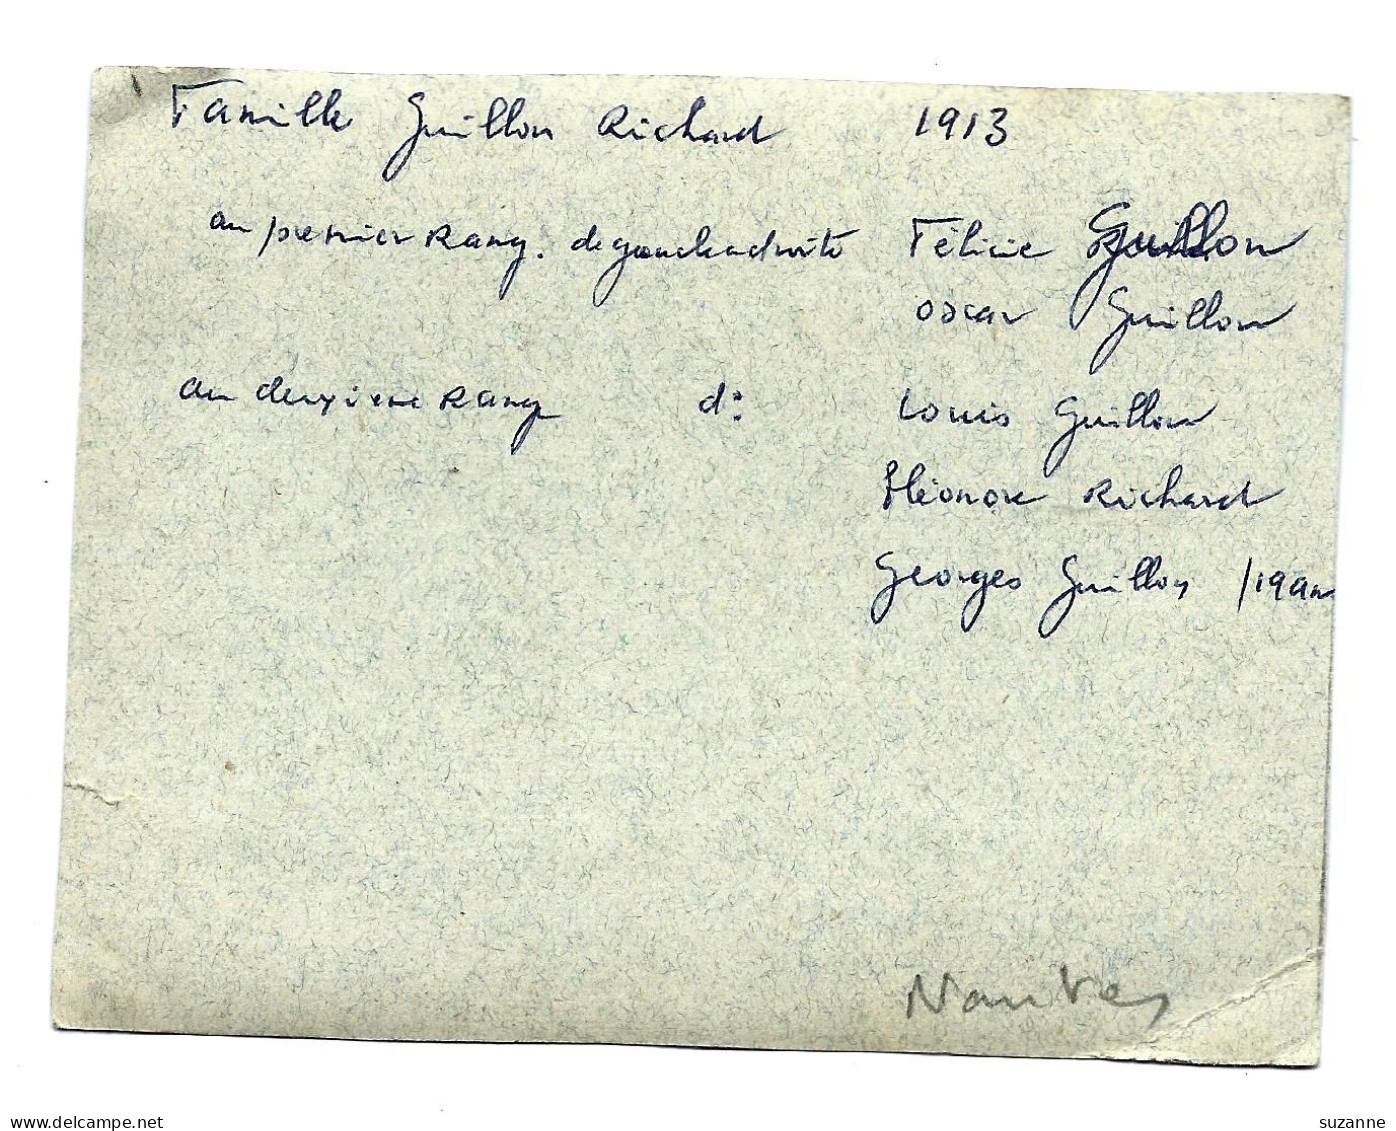 Famille Guillon Richard 1913
au premier Rang. de gauche a droite Félicie Guillon
oscar Guillon
au deuxieme Rang d° Louis Guillon
Eléonore Richard
Georges Guillon /19 ans
Nantes
delcampe.net
suzanne